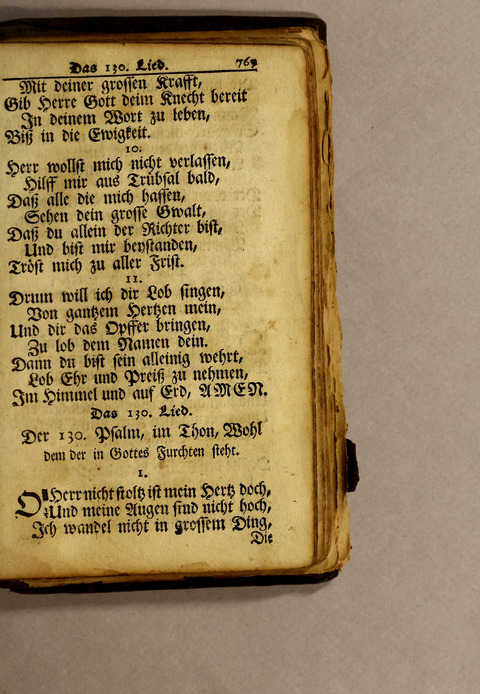 Das 130. Lied. 769
Mit deiner grossen Krafft,
Gib Herre Gott deim Knecht bereit
In deinem Wort zu leben,
Biß in die Ewigkeit.
10.
Herr wollst mich nicht verlassen,
Hilff mir aus Trübsal bald,
Daß alle die mich hassen,
Sehen dein grosse Gwalt,
Daß du allein der Richter bist,
Und bist mir beystanden,
Tröst mich zu aller Frist.
11.
Drum will ich dir Lob singen,
Von gantzem Hertzen mein,
Und dir das Opffer bringen,
Zu lob dem Namen dein.
Dann du bist sein alleinig wehrt,
Lob Ehr und Preiß zu nehmen,
Im Himmel und auf Erd, AMEN.
Das 130. Lied.
Der 130. Psalm, im Thon, Wohl
dem der in Gottes Furchten steht.
1.
O Herr nicht stoltz ist mein Hertz doch,
Und meine Augen sind nicht hoch,
Ich wandel nicht in grossem Ding,
Die